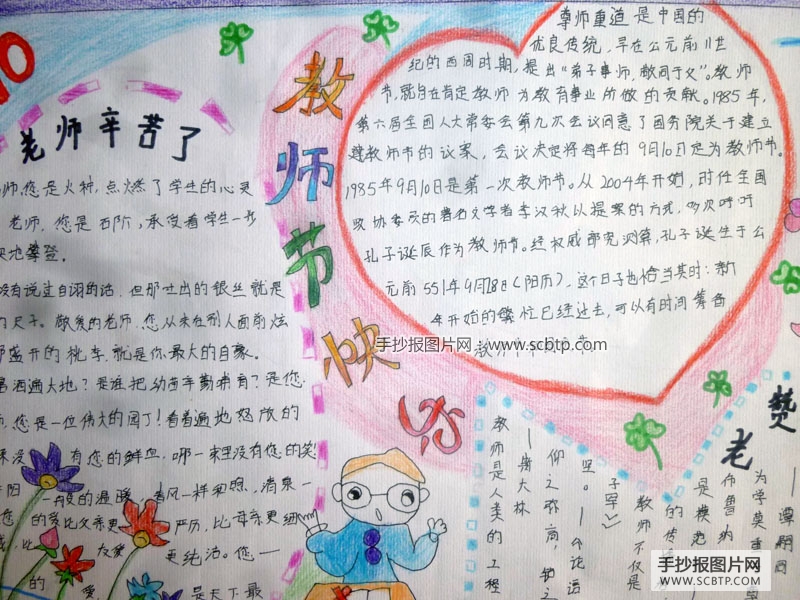 10
老师辛苦了
师,您是火种,点燃了学生的心灵
老师,您是石阶,承受着学生一步
快地攀登。
没有说过自诩的话,但那吐出的银丝就是
尺子。敬爱的老师,您从来在别人面前炫
盛开的桃李,就是你最大的自豪。
洒遍大地?是谁把幼苗辛勤哺育?是您
您是一位伟大的园丁!看着遍地怒放的
有您的鲜血,哪一家里没有您的笑
阳一般的温暖,春风一样和煦,清泉一
您的爱比父亲更严厉,比母亲更细
比友爱更纯洁。您——
的爱是天下最
教师节快乐
尊师重道是中国的
优良传统,早在公元前11世
纪的西周时期,提出“弟子事师,敬同于父”。教师
节,就旨在肯定教师为教育事业所做的贡献。1985年,
第六届全国人大常委会第九次会议同意了国务院关于建立
建教师节的议案,会议决定将每年的9月10日定为教师节。
1985年9月10日是第一次教师节。从2004年开始,时任全国
政协委员的著名文学者李汉秋以提案的方式,多次呼吁
孔子诞辰作为教师节。经权威部究测算,孔子诞生于公
元前551年9月28日(阳历),这个日子也恰当其时:新
年开始的繁忙已经过去,可以有时间筹备
手抄报图片网 www.scbtp.com
赞
老
——谭嗣同
为学莫重
布鲁纳
是模范
的
教师不仅是
子罕》
坚。——《论语
仰之弥高,钻之
——斯大林
教师是人类的工程
手抄报图片网
WWW.SCBTP.COM